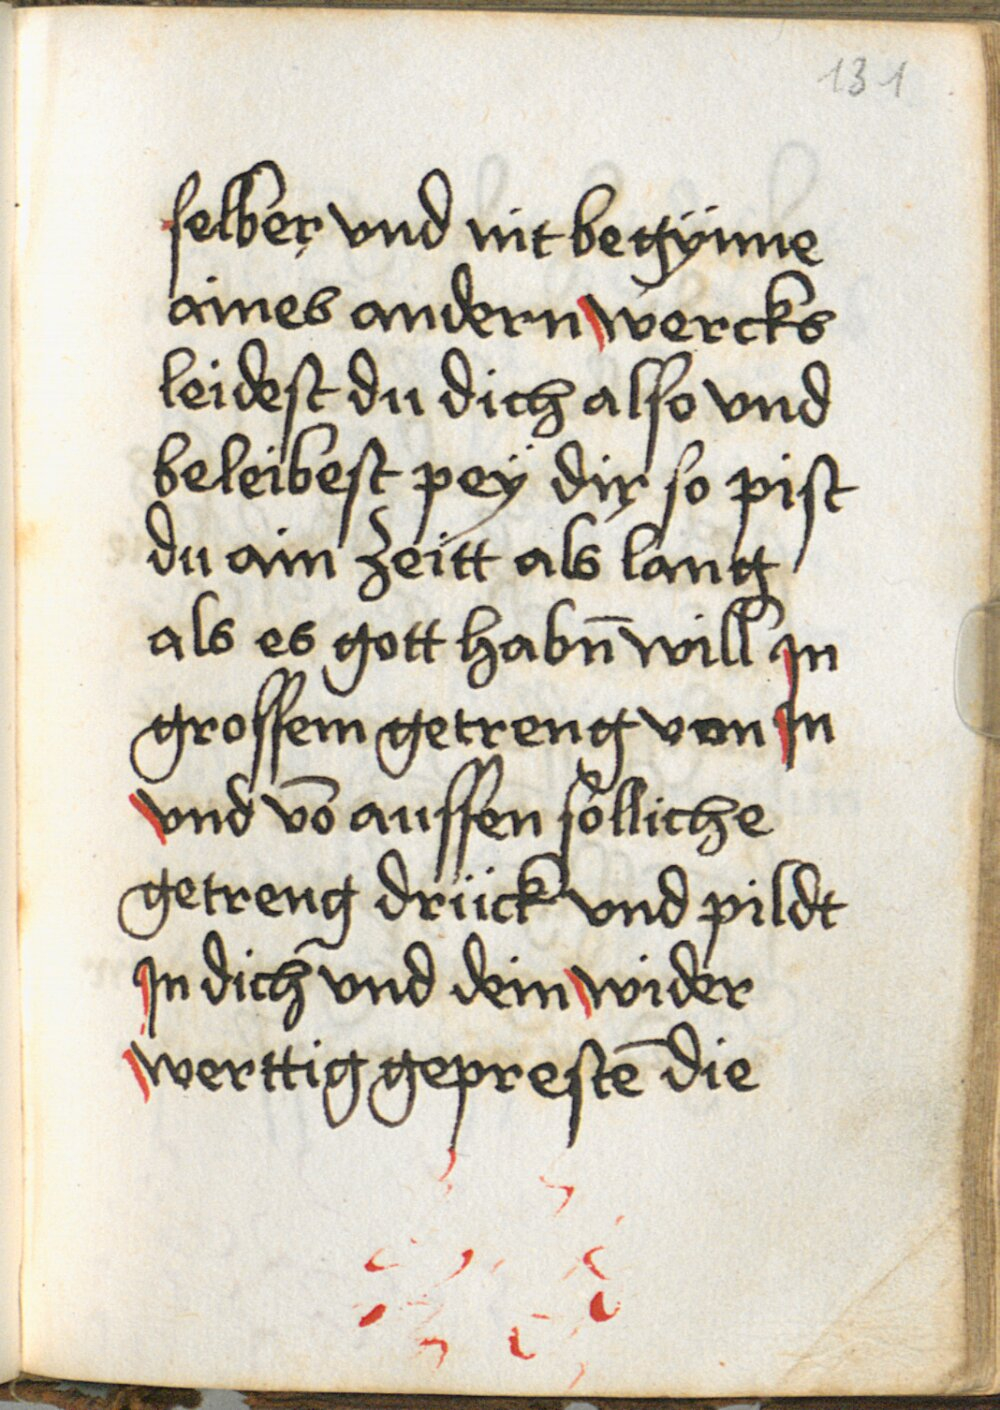 131
selber vnd nit begÿnne
aines andern wercks
leidest du dich also vnd
beleibest peÿ dir so pist
du ain zeitt als lang
als es gott habn̄ will Jn
grossem getreng von Jn
vnd vō aussen sölliche
getreng drück vnd pildt
Jn dich vnd dein wider
werttig geprestē die